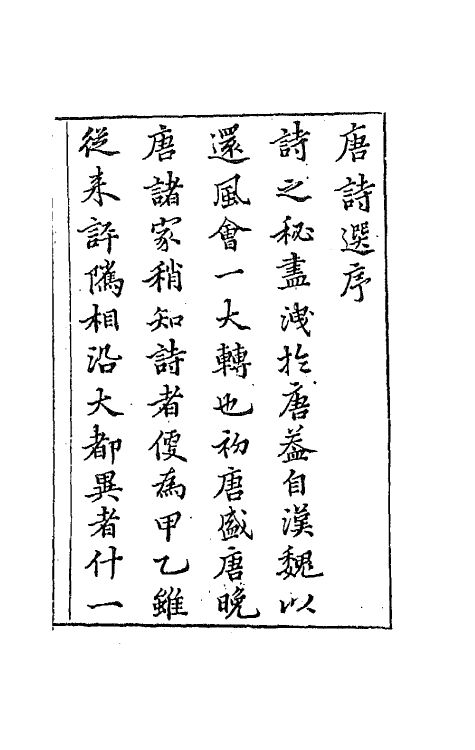 唐詩選序
詩之秘盡洩於唐葢自漢魏以
還風會一大轉也初唐盛唐晚
唐諸家稍知詩者便為甲乙雖
從来評隲相沿大都異者什一